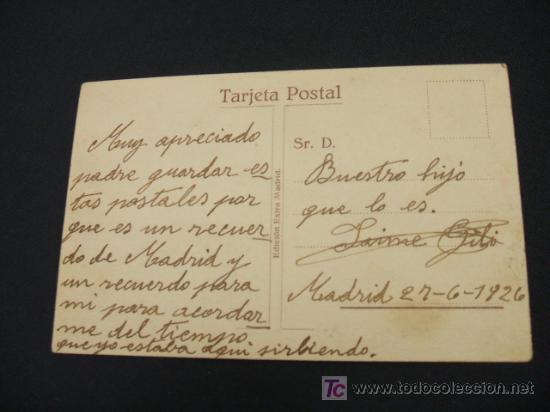 Tarjeta Postal
Muy apreciado
padre guardar es-
tas postales por
que es un recuer-
do de Madrid y
un recuerdo para
mi para acordar
me del tiempo
que yo estaba aqui sirbiendo.
Edición Extra Madrid.
Sr. D.
Buestro hijo
que lo es.
Jaime
Madrid 27-6-1926
TC
todocoleccion
www.todocoleccion.net